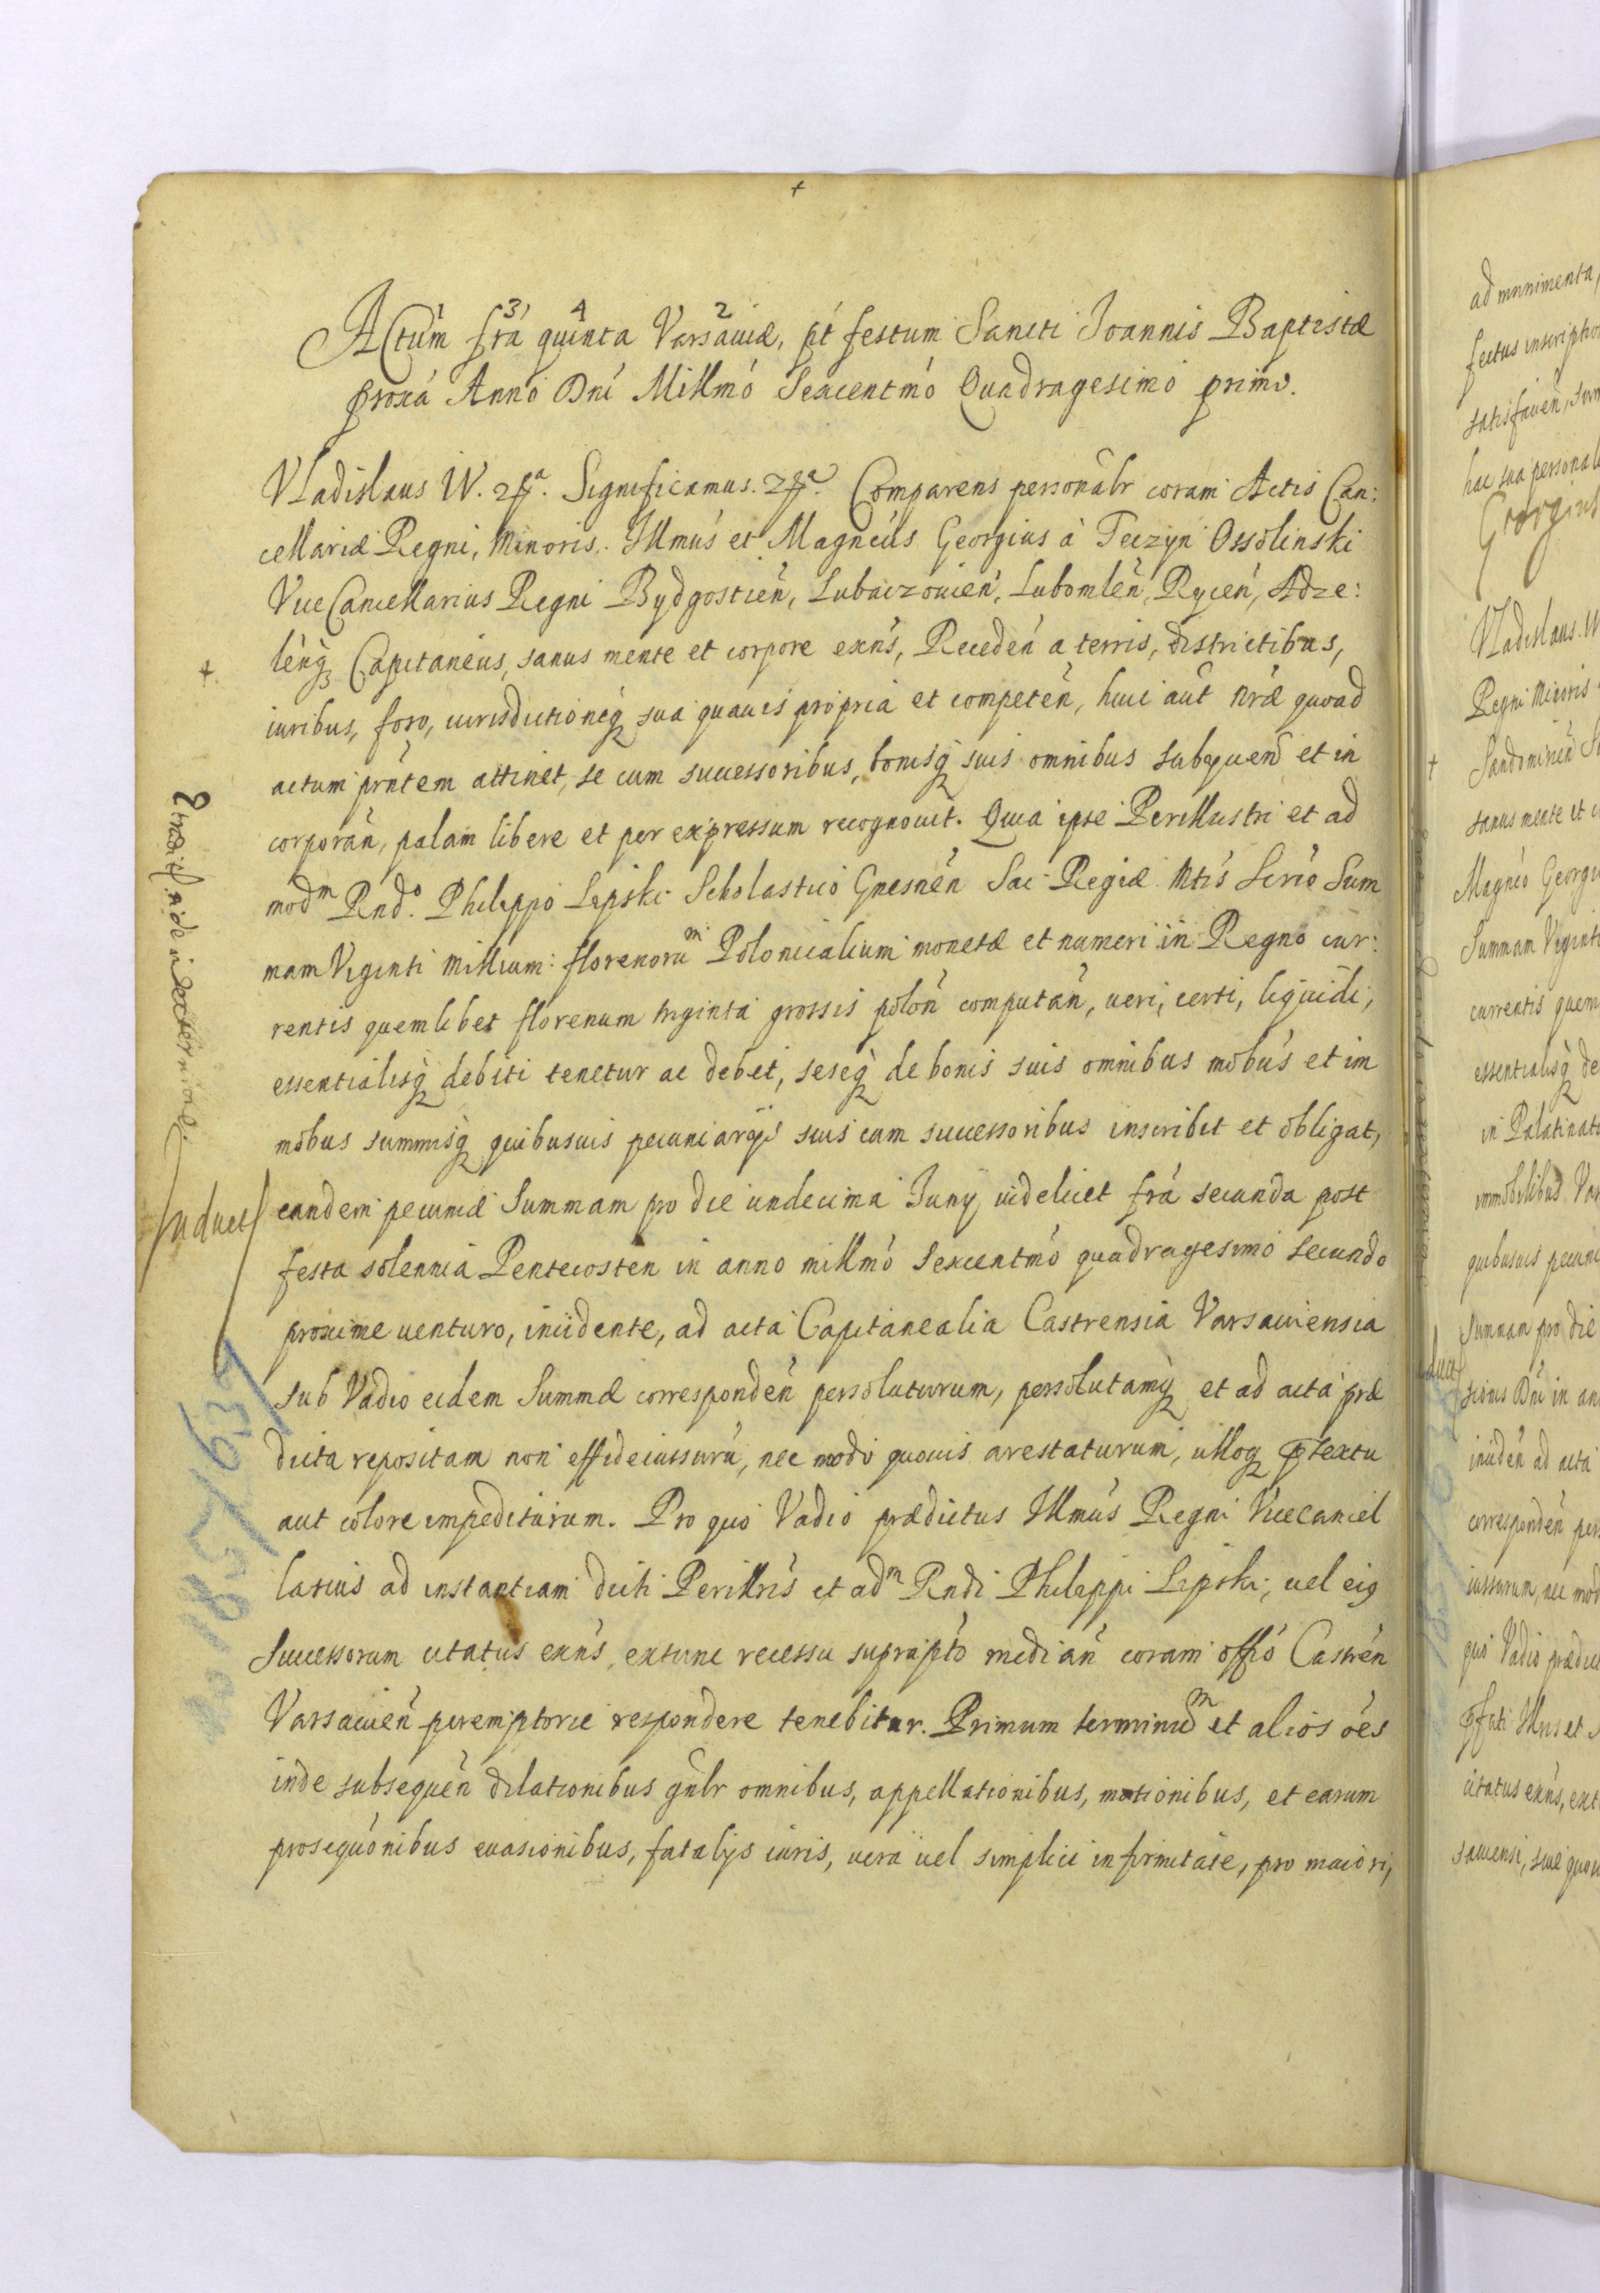 +
3 4 2
Actum fra quinta Varsauiæ, pt festum Sancti Joannis Baptistæ
proxa Anno Dni Millmo Sexcentmo Quadragesimo primo.
Vladislaus IV. Significamus. Comparens personalr coram Actis Can:
cellariæ Regni, Minoris. Illmus et Magncus Georgius à Teczyn Ossolinski
ViceCancellarius Regni Bydgostien, Lubaczouien, Lubomlen, Rycen, Adze:
lenq Capitaneus, sanus mente et corpore exns, Receden a terris, districtibus,
iuribus, foro, iurisdictioneq sua quauis propria et competen, huic aut nræ quoad
actum prntem attinet, se cum successoribus, bonisq suis omnibus subycien et in
corporan, palam libere et per expressum recognouit. Quia ipse Perillustri et ad
modm Rndo. Philippo Lipski Scholastico Gnesnen Sac Regiæ Mtis Scrio Sum
mam Viginti Millium florenorum Polonicalium monetæ et numeri in Regno cur:
rentis quemlibet florenum triginta grossis polon computan, ueri, certi, liquidi,
essentialisq debiti tenetur ac debet, seseq de bonis suis omnibus mobus et im
mobus summisq quibusuis pecuniarys suis cum successoribus inscribit et obligat,
eandem pecuniæ Summam pro die undecima Juny uidelicet fra secunda post
festa solennia Pentecosten in anno millmo Sexcentmo quadragesimo secundo
proxime uenturo, incidente, ad acta Capitanealia Castrensia Varsauiensia
sub Vadio eidem Summæ corresponden persoluturum, persolutamq et ad acta præ
dicta repositam non effideiussuru, nec modo quouis arestaturum, ulloq ptextu
aut colore impediturum. Pro quo Vadio prædictus Illmus Regni Vicecancel
larius ad instantiam dicti Perillris et adm Rndi Philippi Lipski, uel eig
Successorum citatus exns, extunc recessu suprapto median coram offo Castren
Varsauien peremptorie respondere tenebitur. Primum terminum et alios oes
inde subsequen dilationibus gnlr omnibus, appellationibus, motionibus, et earum
prosequonibus euasionibus, fatalijs iuris, uera uel simplici infirmitate, pro maiori,
+
ad munimenta,
satisfacien,
hac sua personali
Georgius
Vladislaus
Regni Minoris
+
sanus mente et
Magnco Georgi
Summam Viginti
currentis quem
essentialisq de
in Palatinatu
immobilibus
quibusuis pecuni
Summam pro die
Dni in an
inciden ad acta
corresponden per
iussurum, nec mod
quo Vadio prædic
citatus exns, ext